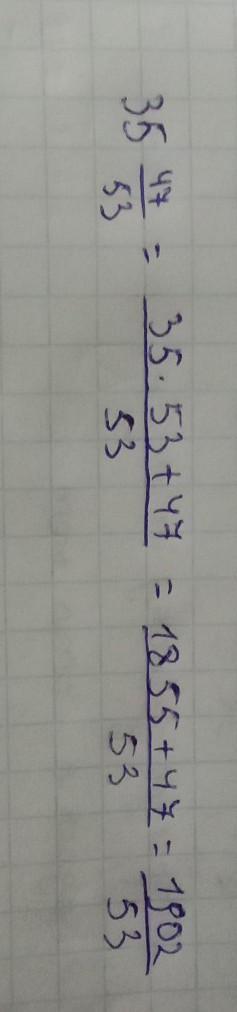 35 47/53 = (35·53+47)/53 = (1855+47)/53 = 1902/53